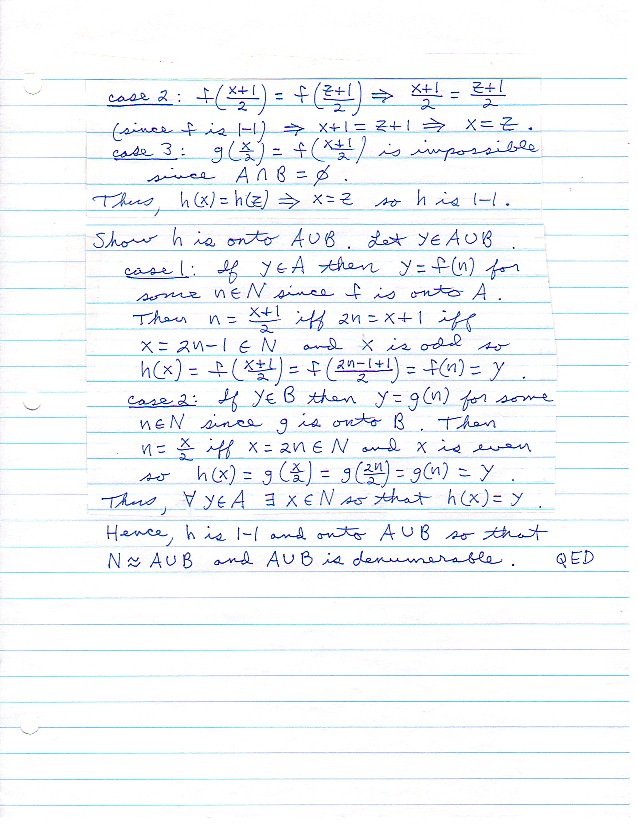 case 2: f((x+1)/2) = f((z+1)/2) ⇒ (x+1)/2 = (z+1)/2
(since f is 1-1) ⇒ x+1 = z+1 ⇒ x = z.
case 3: g(x/2) = f((x+1)/2) is impossible
since A∩B = ∅.
Thus, h(x) = h(z) ⇒ x = z so h is 1-1.
Show h is onto A∪B. Let y∈A∪B.
case 1: If y∈A then y = f(n) for
some n∈N since f is onto A.
Then n = (x+1)/2 iff 2n = x+1 iff
x = 2n-1 ∈ N and x is odd so
h(x) = f((x+1)/2) = f((2n-1+1)/2) = f(n) = y.
case 2: If y∈B then y = g(n) for some
n∈N since g is onto B. Then
n = x/2 iff x = 2n∈N and x is even
so h(x) = g(x/2) = g(2n/2) = g(n) = y.
Thus, ∀ y∈A ∃ x∈N so that h(x) = y.
Hence, h is 1-1 and onto A∪B so that
N≈A∪B and A∪B is denumerable. QED